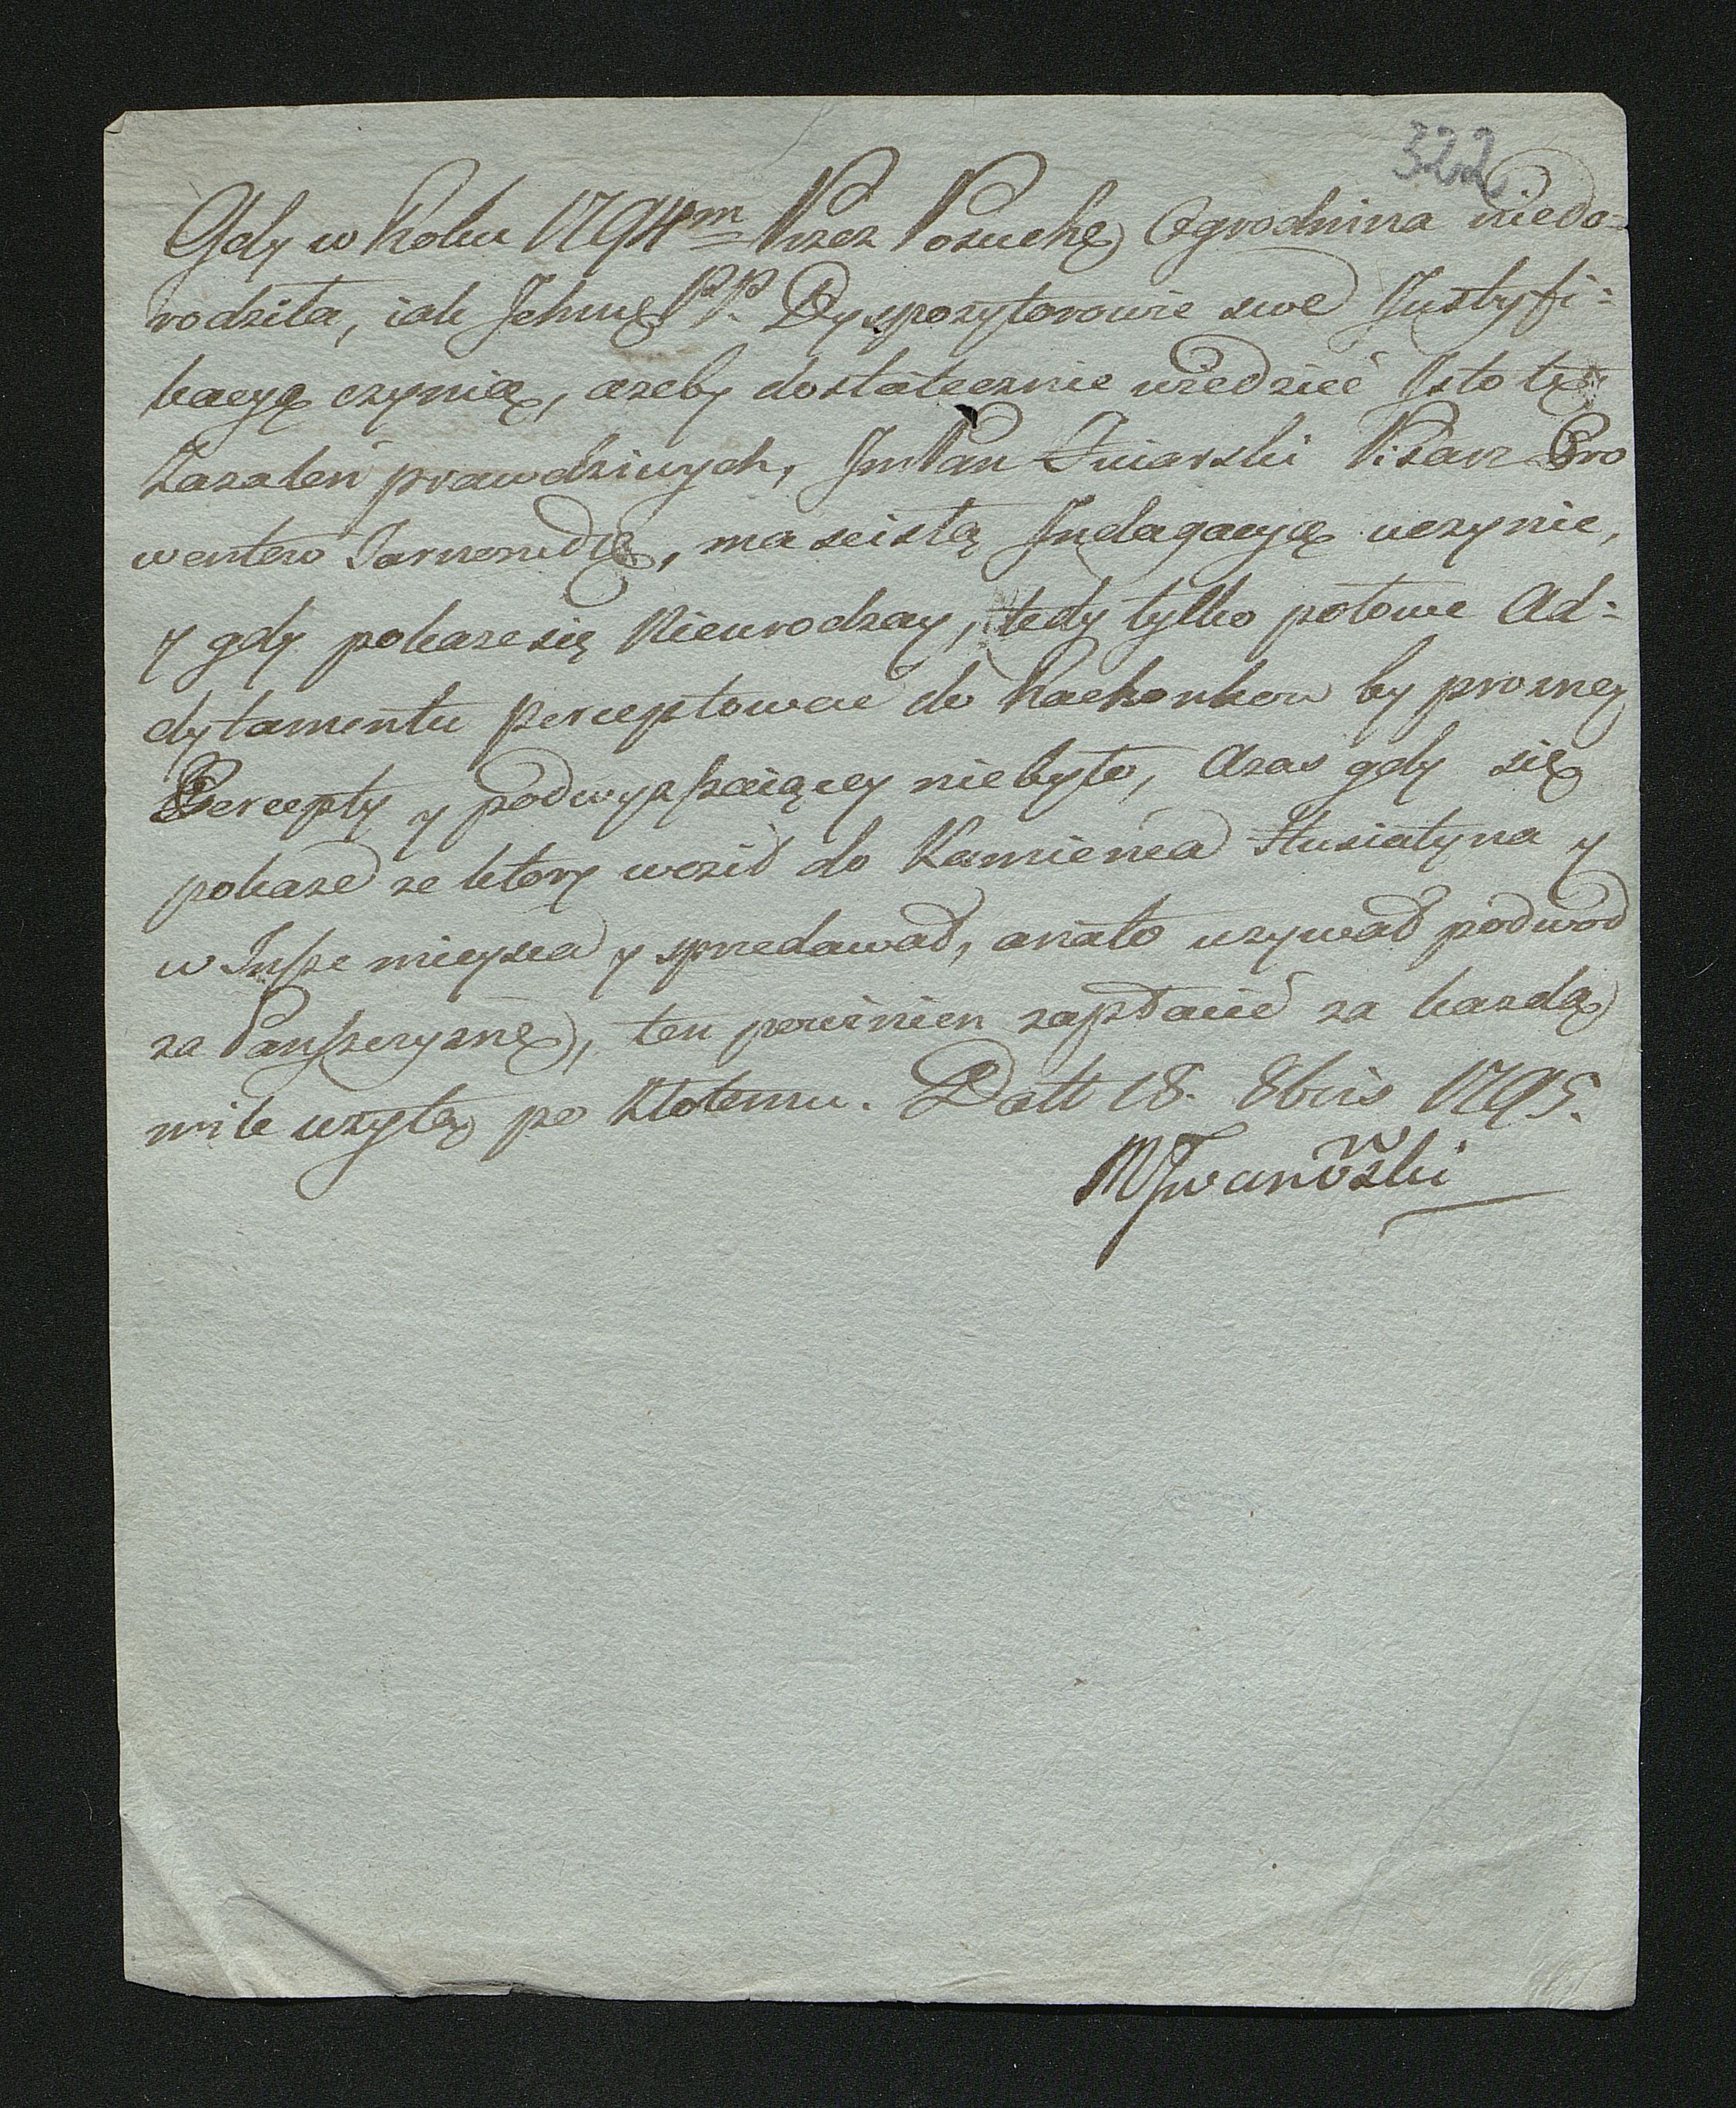 322
Gdy w Roku 1794m Przez Posuchę Ogrodnina niedo=
rodziła, iak Jchmę PP. Dyspozytorowie swe Justyfi=
kacyą czynią, azeby dostatecznie wiedzieć Istotę
Zazaleń prawdziwych, JmPan Pisarz Pro
wentow, ma scisłą Jndagacyą uczynic,
y gdy pokaze się Nieurodzay, tedy tylko połowe Ad=
dytamentu perceptowac do Rachonkow by prozney
Percepty y podwyzszaiącey niebyło, Azas gdy się
pokaze ze ktory woził do Kamienca Husiatyna y
w Insze mieysca y sprzedawał, anato uzywał podwod
za Panszczyznę, ten powinien zapłacić za kazdą
mile uzytą po Złotemu. Datt 18. 8bris 1795.
MJwanowski